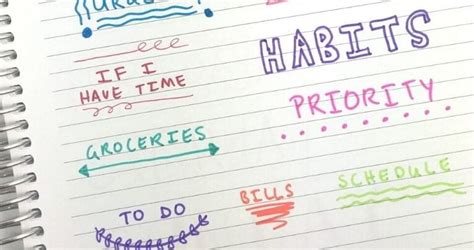 HABITS
IF I
HAVE TIME
PRIORITY
GROCERIES
SCHEDULE
BILLS
TO DO